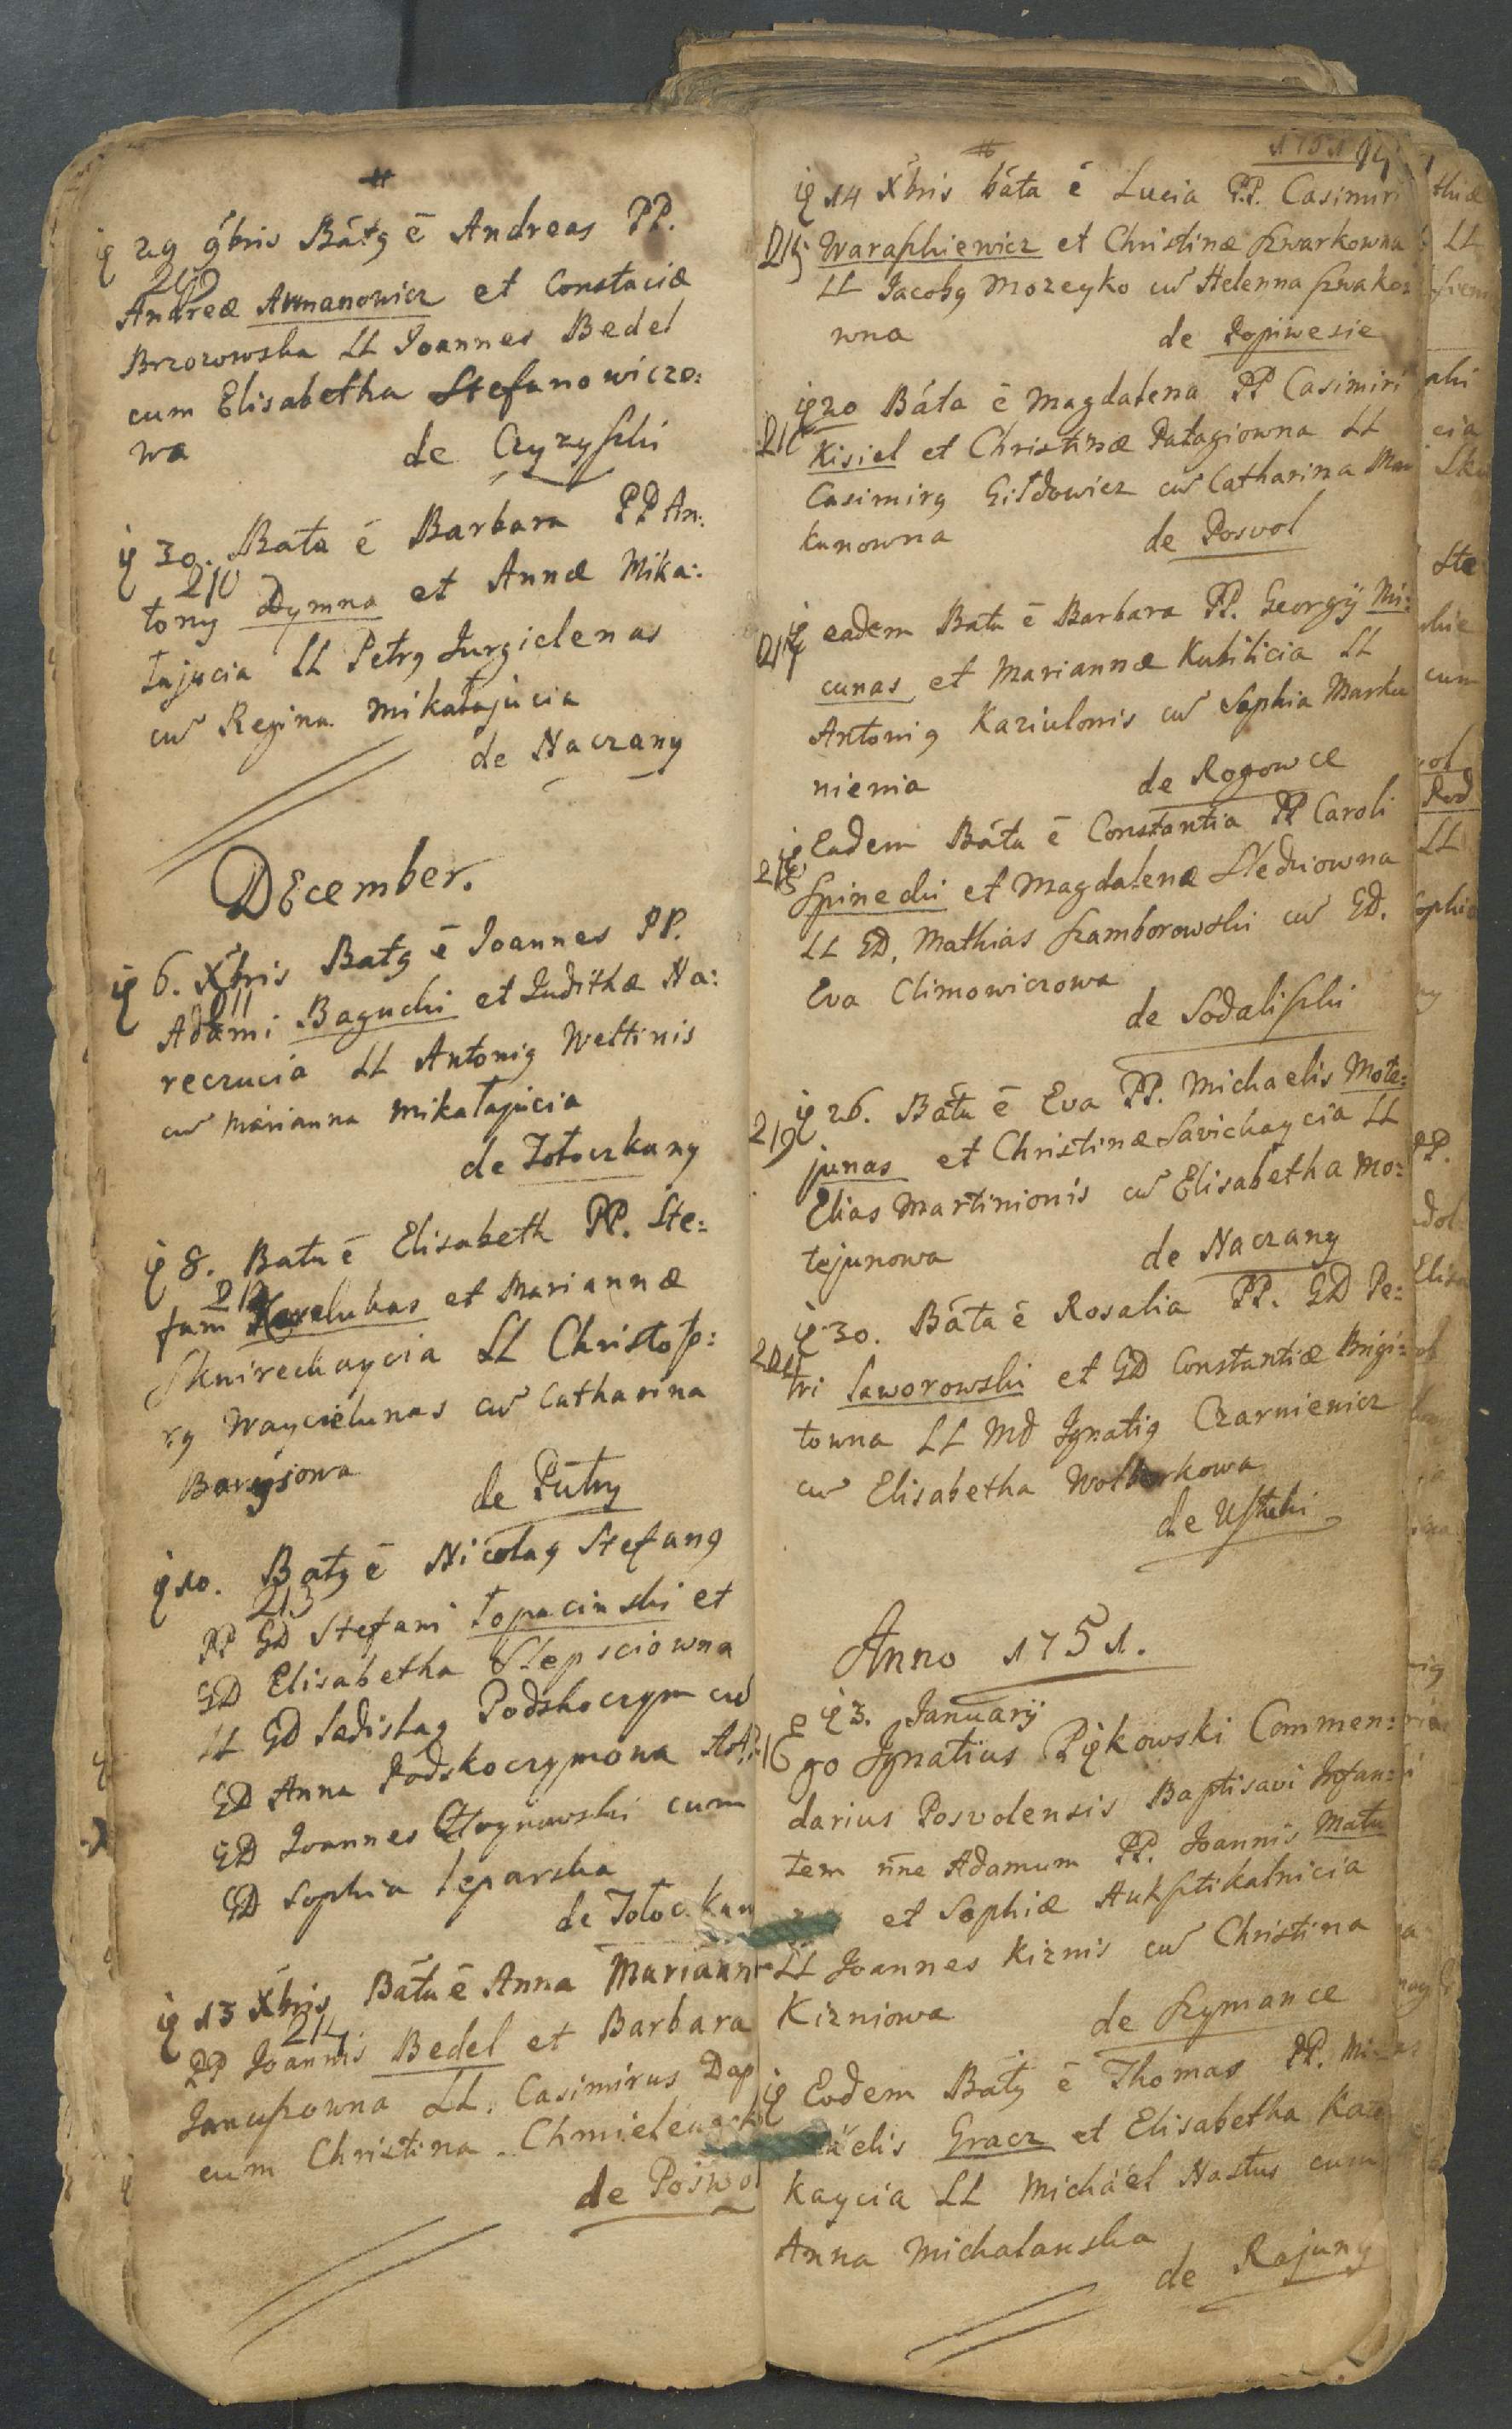 #
ię 29 9bris Bátg ē Andreas PP.
209
Andreæ Armanowicz et Constaciæ
Brzozowska LL Joannes Bedel
cum Elisabetha Stefanowiczo:
wa de Czyzyszki
ię 30. Bata ē Barbara PP An:
210
tony Dymna et Annæ Mika:
łajucia LL Petrg Jurgielenas
cū Regina Mikałajucia
de Naczany
December.
ię 6. Xbris Batg ē Joannes PP.
211
Adami Baguchi et Judithæ Na:
reczucia LL Antonig Weltinis
cū Marianna Mikałajucia
de Tołoczkany
ię 8. Bata ē Elisabeth PP. Ste:
212
fani Kavelukas et Mariannæ
Skuireckaycia LL Christop:
rg Waycielunas cū Catharina
Barysiowa
de Putry
ię 10. Batg ē Nicolag Stefang
213
PP GD Stefani Łopacinski et
GD Elisabetha Slepsciowna
LL GD Ladislag Podskoczym cū
GD Anna Podskoczymowa
GD Joannes cum
GD Sophia Leparska
de Tołoczkan
ię 13 Xbris Báta ē Anna Mariann
214
PP Joannis Bedel et Barbara
Januszowna LL. Casimirus Dap
cum Christina Chmielewsk
de Poswol
#
1751 14
ię 14 Xbris báta ē Lucia PP. Casimiri
215 Waraszkiewicz et Christinæ Szwarkowna
LL Jacobg Mozeyko cū Helenna Szwakoz
wna de Popiwesie
ię 20 Báta ē Magdalena PP Casimiri
216
Kisiel et Christinæ Patagiowna LL
Casimirg Giłdowicz cū Catharina Mar
kunowna de Posvol
ię eadem Bata ē Barbara PP. Georgÿ Mi:
217
cunas et Mariannæ Kubilicia LL
Antonig Kaziulonis cū Sophia Marku
nienia de Rogowce
ię Eadem Báta ē Constantia PP Caroli
218
Spinecki et Magdalenæ Sledziowna
LL GD. Mathias Szamborowski cū GD.
Eva Climowiczowa
de Sodaliszki
ię 26. Báta ē Eva PP. Michaelis Mote:
219
junas et Christinæ Savickaycia LL
Elias Martinionis cū Elisabetha Mo:
tejunowa de Naczany
ię 30. Báta ē Rosalia PP. GD Pe:
220
tri Jaworowski et GD Constantiæ Brigi:
towna LL MD Ignatig Czarniewicz
cū Elisabetha
de Usztuki
Anno 1751.
ię 3. Januarÿ
Ego Ignatius Piękowski Commen:
darius Posvolensis Baptisavi Infan:
tem n̄ne Adamum PP. Joannis Matu
et Sophiæ Auksztikalnicia
LL Joannes Kiznis cū Christina
Kizniowa de Szymance
ię Eodem Bátg ē Thomas PP. Mi
aelis Gracz et Elisabetha Kaz
kaycia LL Michäel Nastus cum
Anna Michalanska
de Rajuny